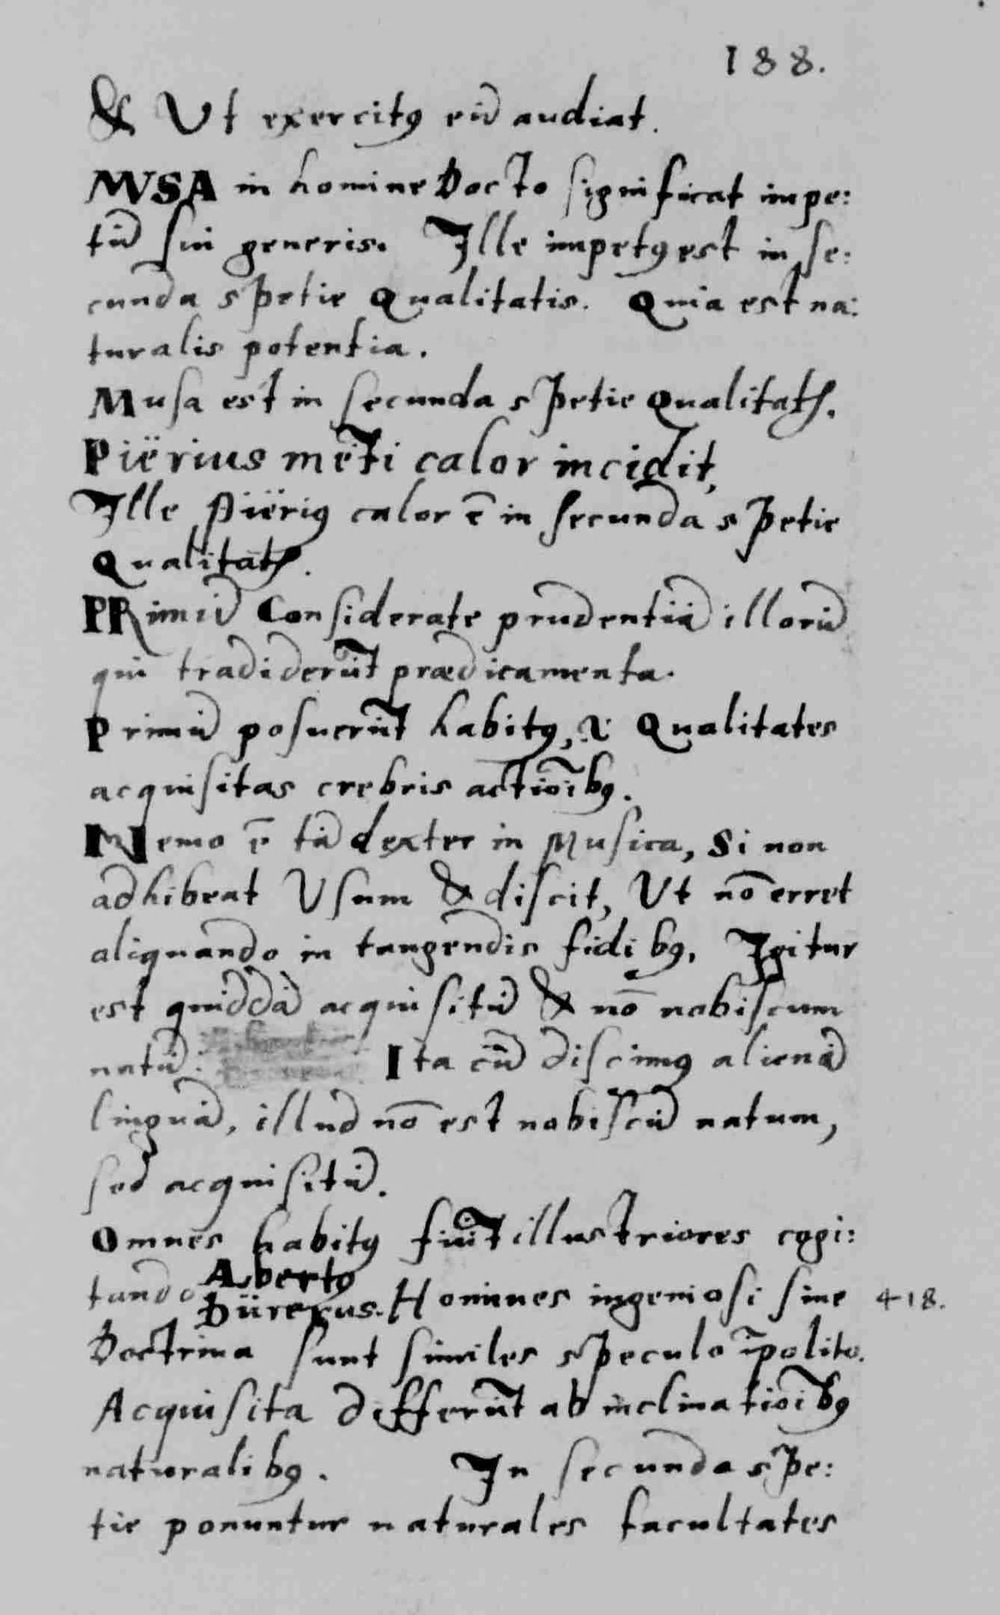 188.
& Ut exercitꝯ eū audiat.
MVSA in homine Docto significat impe:
tū sui generis. Ille impetꝯ est in se:
cunda spetie Qualitatis. Quia est na:
turalis potentia.
Musa est in secunda spetie Qualitatꝭ.
Piërius mēti calor incidit,
Ille Piëriꝯ calor ē in secunda spetie
Qualitatꝭ.
PRimū Considerate prudentiā illorū
qui tradiderūt prædicamenta.
Primū posuerūt habitꝯ, .i. Qualitates
acquisitas crebris actiōibꝯ.
Nemo ē tā dexter in Musica, Si non
adhibeat Usum & discit, Ut nō erret
aliquando in tangendis fidibꝯ. Igitur
est quiddā acquisitū & nō nobiscum
natū. Ita cū discimꝯ alienā
linguā, illud nō est nobiscū natum,
sed acquisitū.
Omnes habitꝯ fiūt illustriores cogi:
tando Albertꝯ
Dürerus. Homines ingeniosi sine 418.
Doctrina sunt similes speculo īpolito.
Acquisita differūt ab inclinatiōibꝯ
naturalibꝯ. In secunda spe:
tie ponuntur naturales facultates